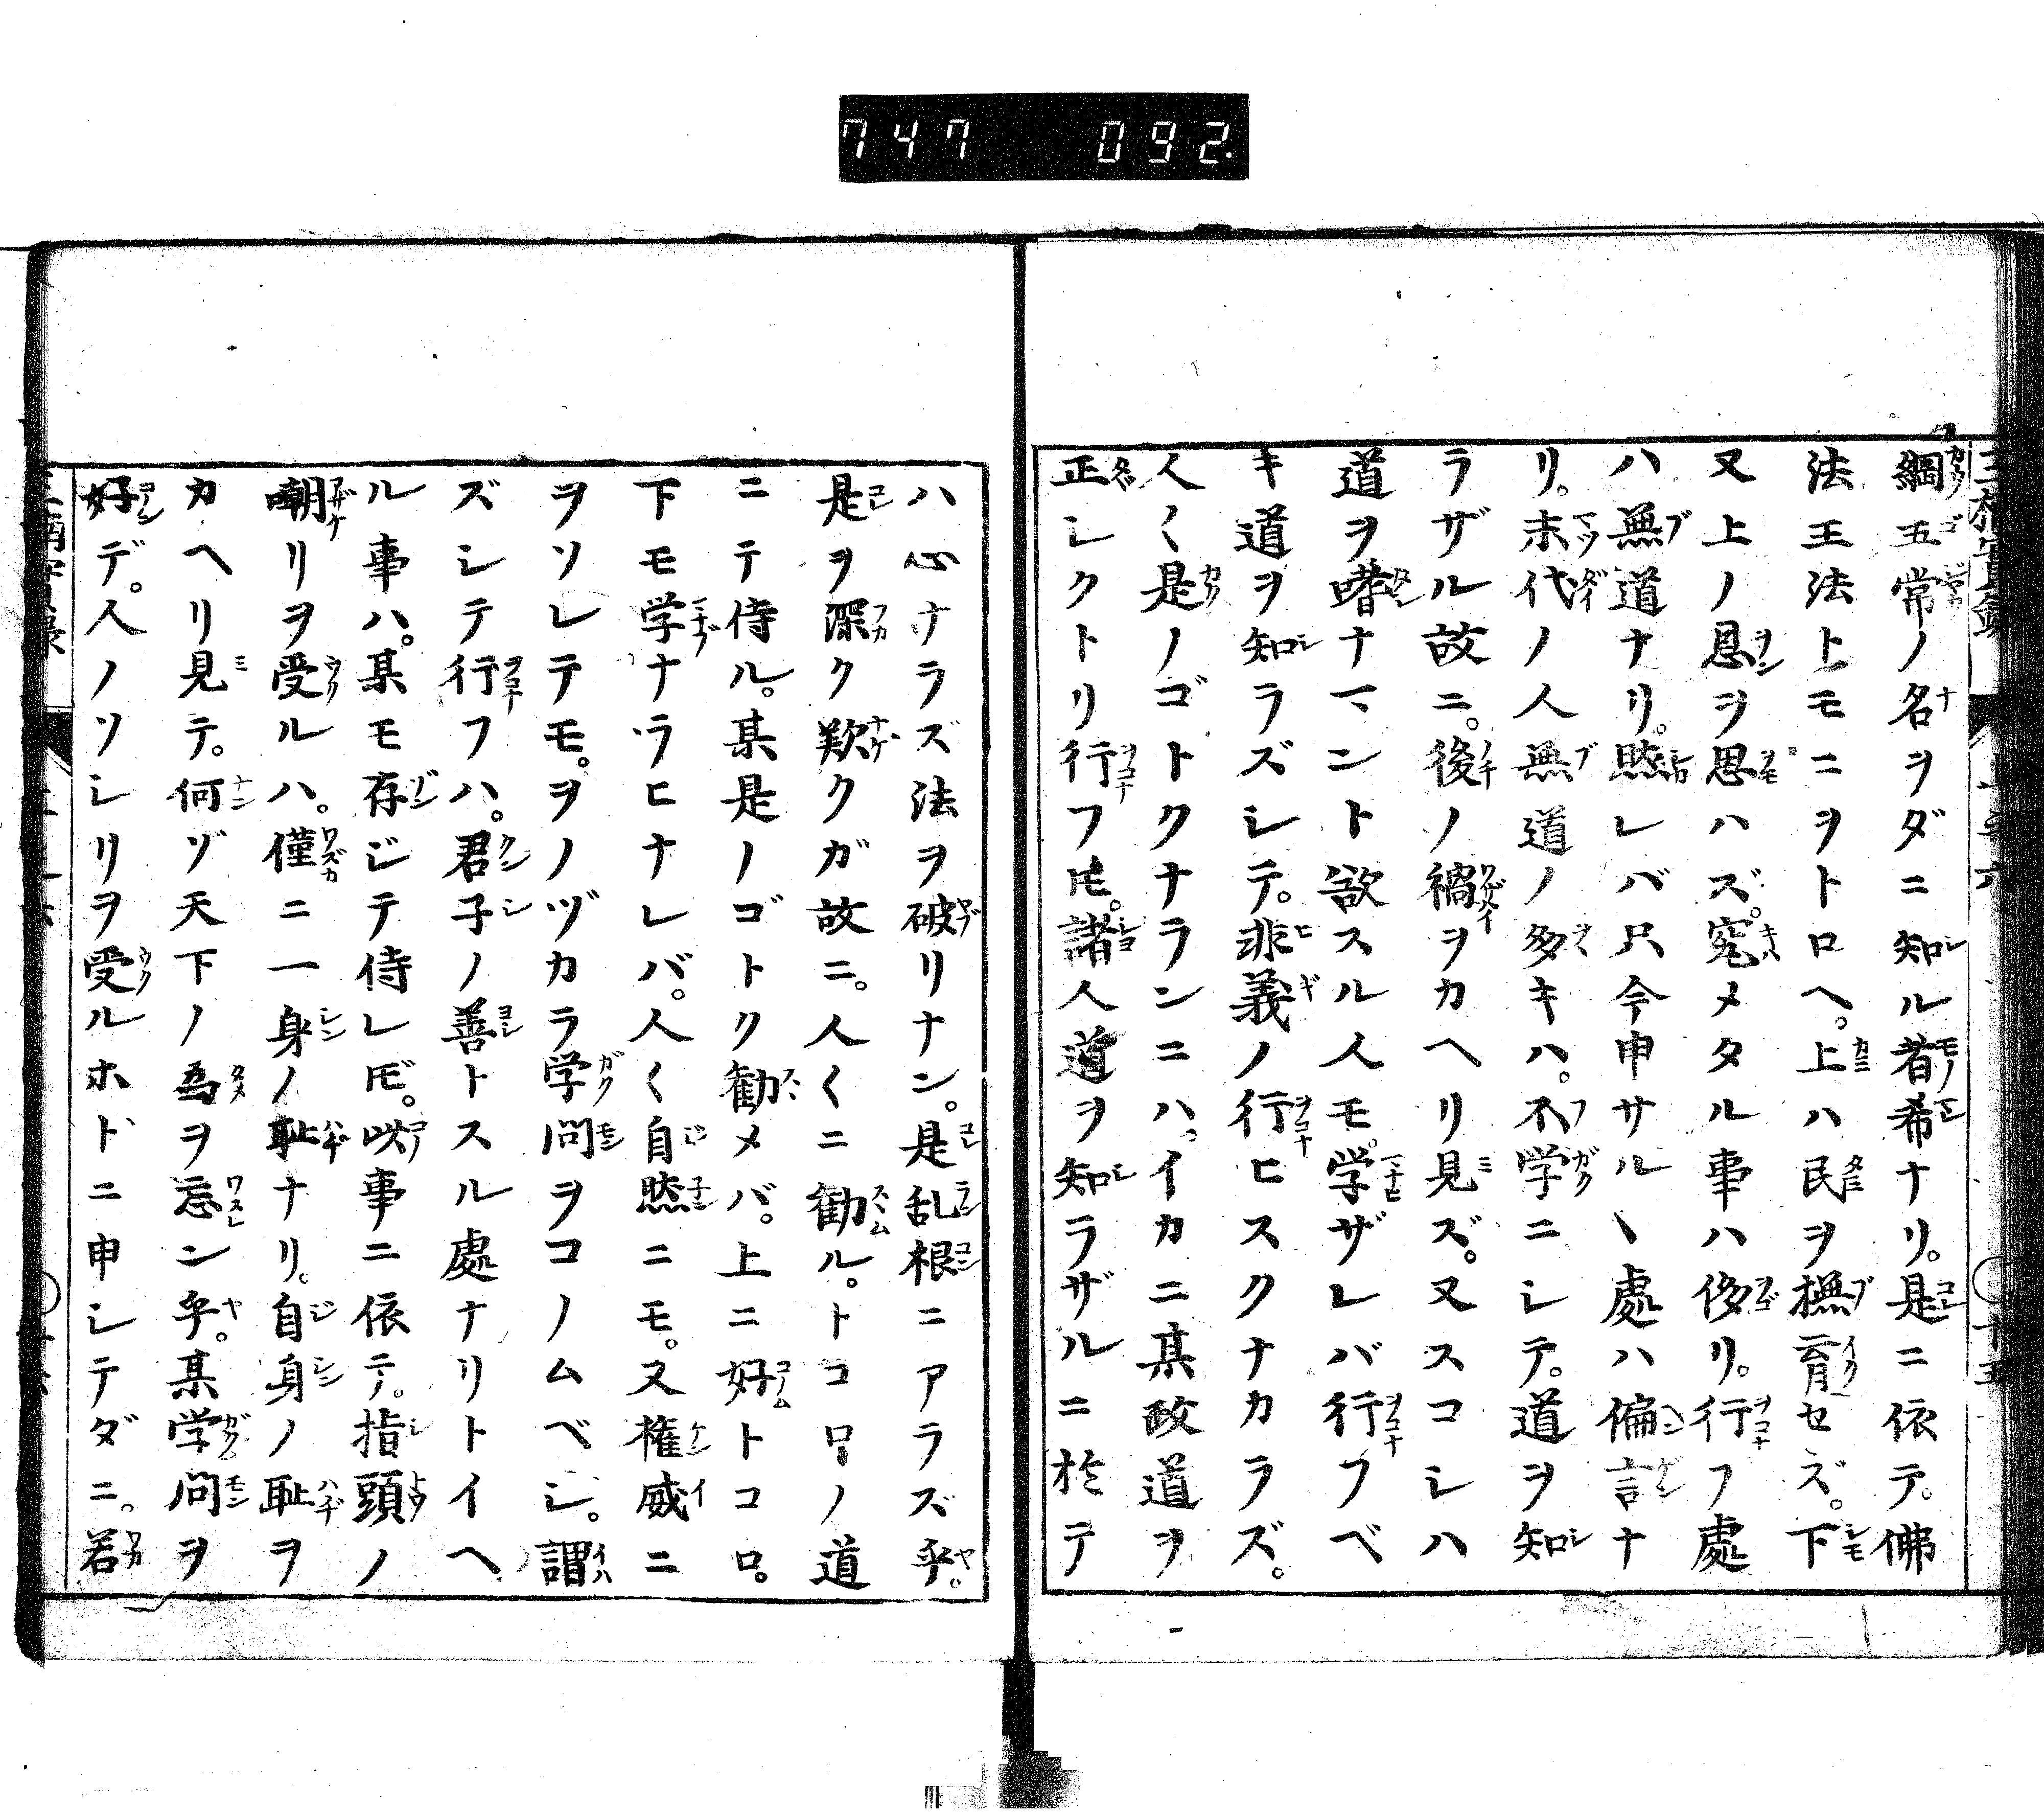 747 092
綱五常ノ名ヲダニ知ル者希ナリ。是ニ依テ。佛
法王法トモニヲトロヘ。上ハ民ヲ撫育セズ。下
又上ノ恩ヲ思ハズ。究メタル事ハ侈リ。行フ處
ハ無道ナリ。然レバ只今申サルヽ處ハ偏言ナ
リ。末代ノ人無道ノ多キハ。不学ニシテ。道ヲ知
ラザル故ニ。後ノ禍ヲカヘリ見ズ。又スコシハ
道ヲ嗜ナマント欲スル人モ。学ザレバ行フベ
キ道ヲ知ラズシテ。非義ノ行ヒスクナカラズ。
人〱是ノゴトクナランニハ。イカニ某政道ヲ
正シクトリ行フ𪜈。諸人道ヲ知ラザルニ於テ
ハ心ナラズ法ヲ破リナン。是乱根ニアラズ乎。
是ヲ深ク歎クガ故ニ。人〱ニ勧ル。トコロノ道
ニテ侍ル。某是ノゴトク勧メバ。上ニ好トコロ。
下モ学ナラヒナレバ。人〱自然ニモ。又権威ニ
ヲソレテモ。ヲノヅカラ学問ヲコノムベシ。謂
ズシテ行フハ。君子ノ善トスル處ナリトイヘ
ル事ハ。某モ存ジテ侍レ𪜈。此事ニ依テ。指頭ノ
嘲リヲ受ルハ。僅ニ一身ノ耻ナリ。自身ノ耻ヲ
カヘリ見テ。何ゾ天下ノ為ヲ忘ン乎。某学問ヲ
好デ。人ノソシリヲ受ルホドニ申シテダニ。若